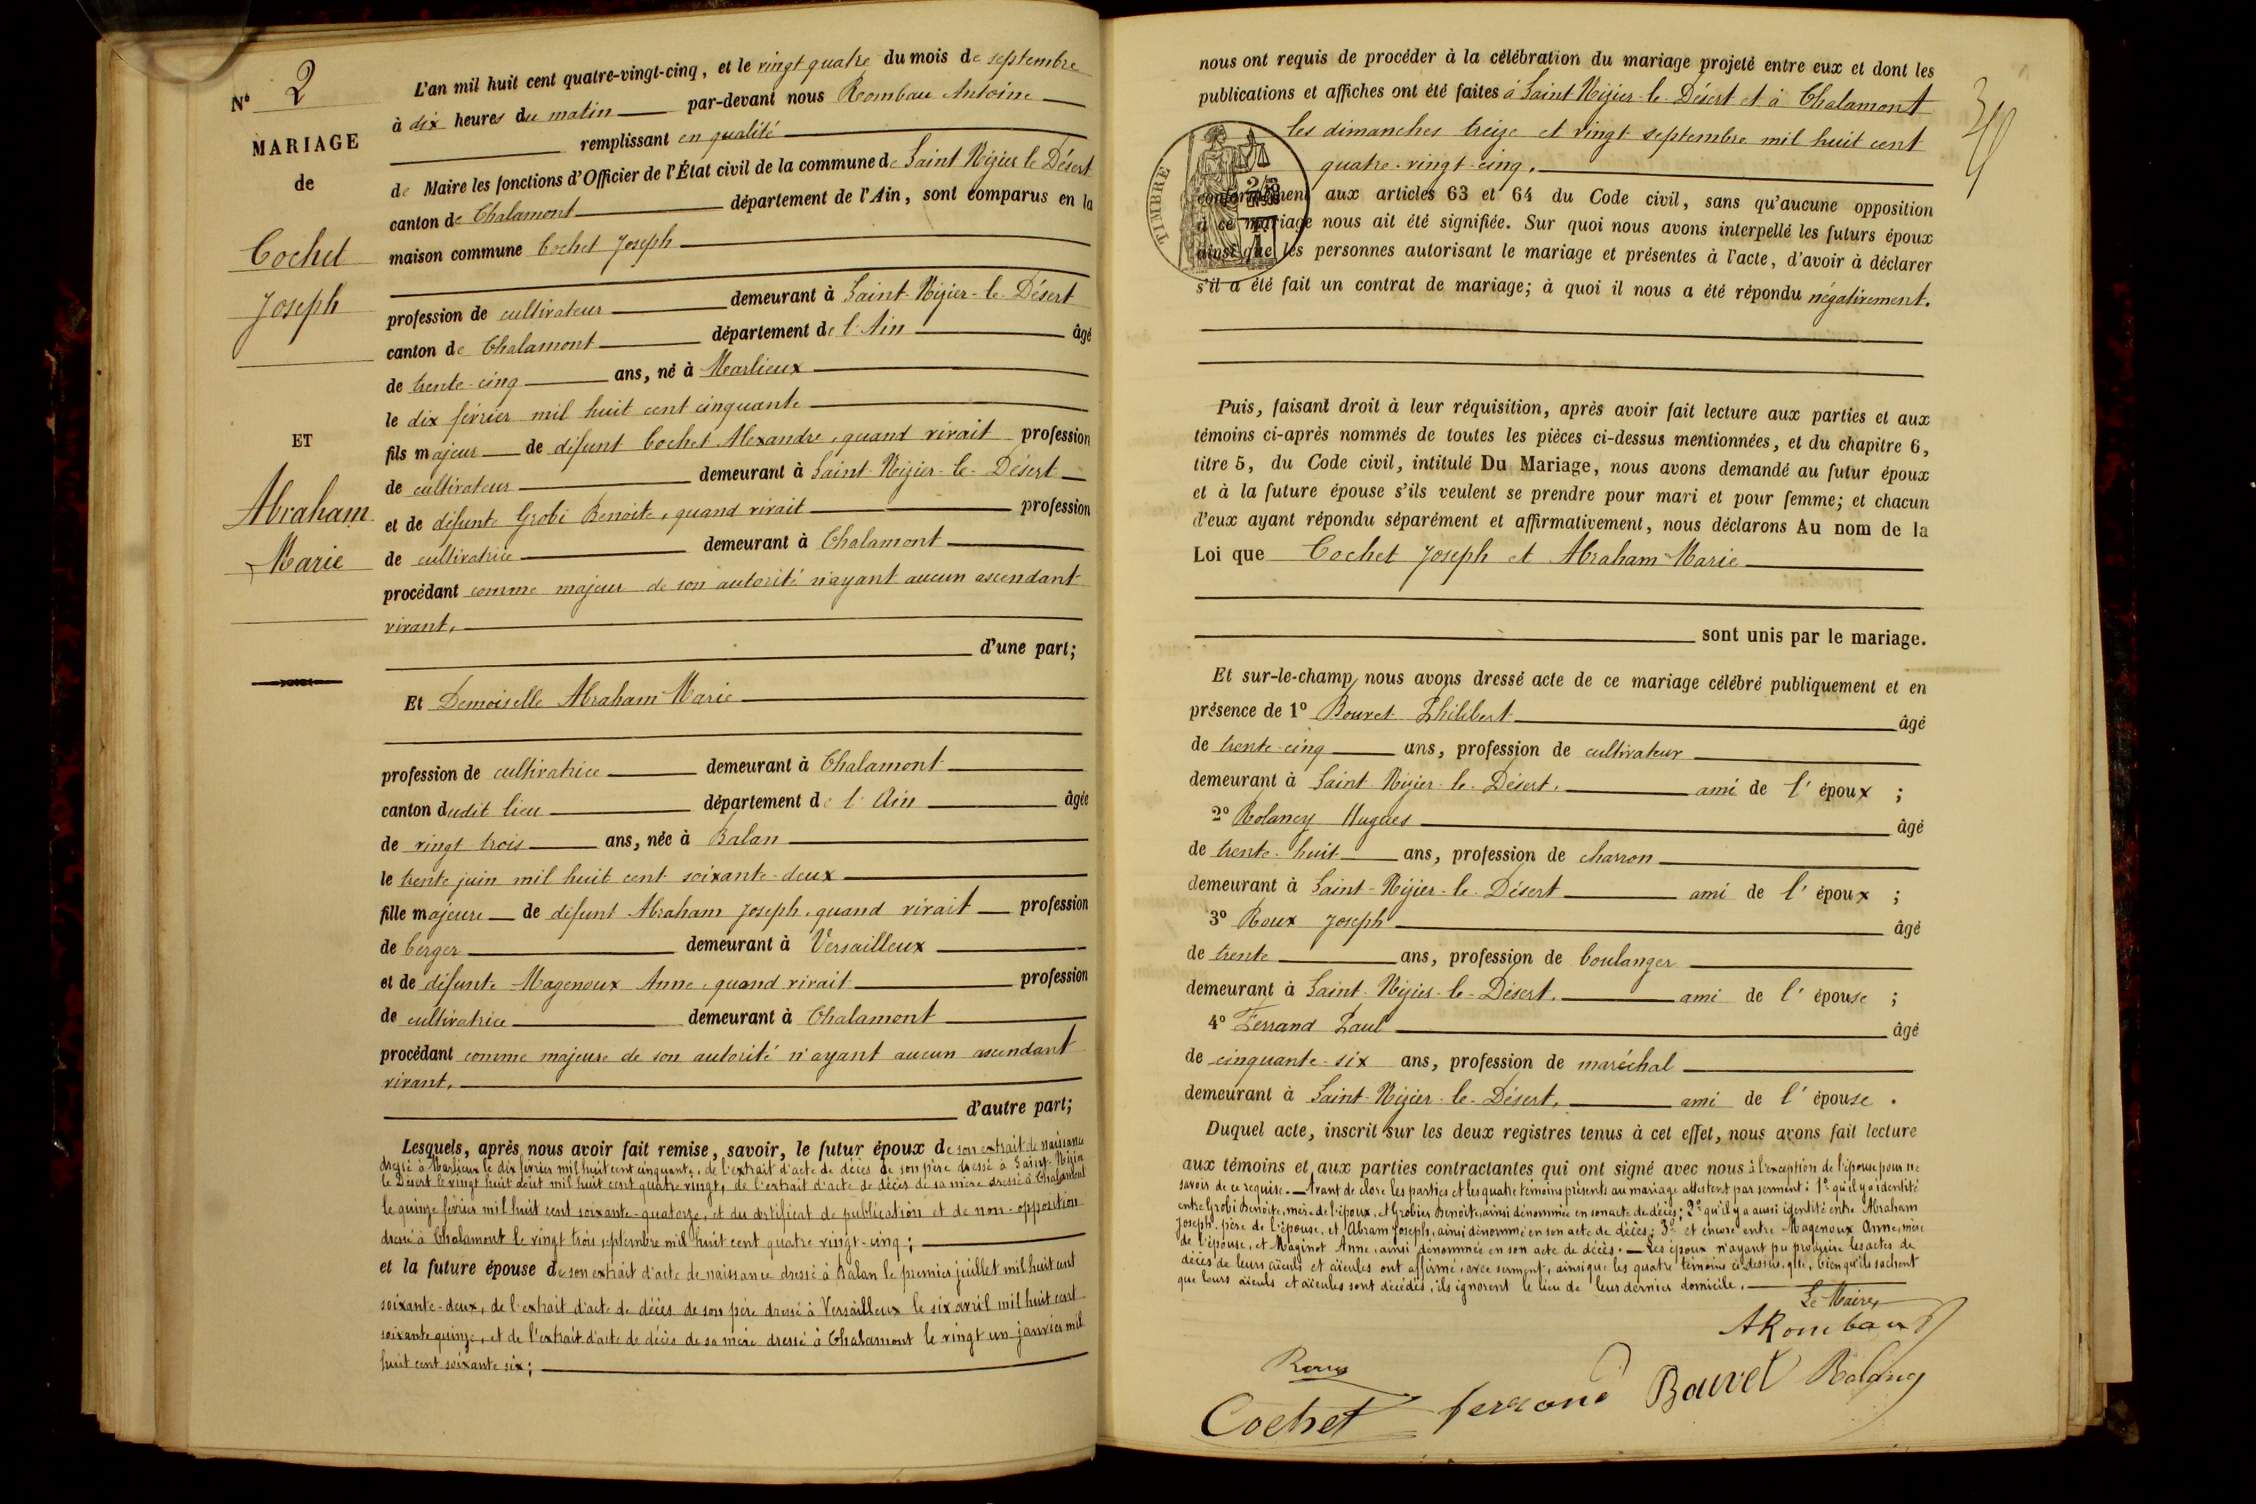 N° 2
MARIAGE
de
Cochet
Joseph
ET
Abraham
Marie
L'an mil huit cent quatre-vingt-cinq, et le vingt quatre du mois de septembre
à dix heures du matin par-devant nous Rombau Antoine
remplissant en qualité
de Maire les fonctions d'Officier de l'État civil de la commune de Saint Nizier le Désert
canton de Chalamont département de l'Ain, sont comparus en la
maison commune Cochet Joseph
profession de cultivateur demeurant à Saint-Nizier-le-Désert
canton de Chalamont département de l'Ain âgé
de trente-cinq ans, né à Marlieux
le dix février mil huit cent cinquante
fils majeur de défunt Cochet Alexandre, quand vivait profession
de cultivateur demeurant à Saint-Nizier-le-Désert
et de défunte Grobi Benoite, quand vivait profession
de cultivatrice demeurant à Chalamont
procédant comme majeur de son autorité n'ayant aucun ascendant
vivant,
d'une part;
Et Demoiselle Abraham Marie
profession de cultivatrice demeurant à Chalamont
canton dudit lieu département de l'Ain âgée
de vingt trois ans, née à Balan
le trente juin mil huit cent soixante-deux
fille majeure de défunt Abraham Joseph, quand vivait profession
de berger demeurant à Versailleux
et de défunte Magenoux Anne, quand vivait profession
de cultivatrice demeurant à Chalamont
procédant comme majeure de son autorité n'ayant aucun ascendant
vivant,
d'autre part;
Lesquels, après nous avoir fait remise, savoir, le futur époux de son extrait de naissance
dressé à Marlieux le dix février mil huit cent cinquante, de l'extrait d'acte de décès de son père dressé à Saint-Nizier
le Désert le vingt huit août mil huit cent quatre vingt, de l'extrait d'acte de décès de sa mère dressé à Chalamont
le quinze février mil huit cent soixante-quatorze, et du certificat de publication et de non-opposition
dressé à Chalamont le vingt trois septembre mil huit cent quatre vingt-cinq;
et la future épouse de son extrait d'acte de naissance dressé à Balan le premier juillet mil huit cent
soixante-deux, de l'extrait d'acte de décès de son père dressé à Versailleux le six avril mil huit cent
soixante quinze, et de l'extrait d'acte de décès de sa mère dressé à Chalamont le vingt un janvier mil
huit cent soixante six;
nous ont requis de procéder à la célébration du mariage projeté entre eux et dont les
publications et affiches ont été faites à Saint Nizier-le-Désert et à Chalamont
les dimanches treize et vingt septembre mil huit cent
quatre-vingt-cinq,
TIMBRE
conformément aux articles 63 et 64 du Code civil, sans qu'aucune opposition
à ce mariage nous ait été signifiée. Sur quoi nous avons interpellé les futurs époux
ainsi que les personnes autorisant le mariage et présentes à l'acte, d'avoir à déclarer
s'il a été fait un contrat de mariage; à quoi il nous a été répondu négativement.
Puis, faisant droit à leur réquisition, après avoir fait lecture aux parties et aux
témoins ci-après nommés de toutes les pièces ci-dessus mentionnées, et du chapitre 6,
titre 5, du Code civil, intitulé Du Mariage, nous avons demandé au futur époux
et à la future épouse s'ils veulent se prendre pour mari et pour femme; et chacun
d'eux ayant répondu séparément et affirmativement, nous déclarons Au nom de la
Loi que Cochet Joseph et Abraham Marie
sont unis par le mariage.
Et sur-le-champ, nous avons dressé acte de ce mariage célébré publiquement et en
présence de 1° Bouvet Philibert âgé
de trente-cinq ans, profession de cultivateur
demeurant à Saint Nizier-le-Désert, ami de l'époux ;
2° Rolancy Hugues âgé
de trente-huit ans, profession de charron
demeurant à Saint-Nizier-le-Désert ami de l'époux ;
3° Roux Joseph âgé
de trente ans, profession de boulanger
demeurant à Saint-Nizier-le-Désert, ami de l'épouse ;
4° Ferrand Paul âgé
de cinquante-six ans, profession de maréchal
demeurant à Saint-Nizier-le-Désert, ami de l'épouse .
Duquel acte, inscrit sur les deux registres tenus à cet effet, nous avons fait lecture
aux témoins et aux parties contractantes qui ont signé avec nous à l'exception de l'épouse pour ne
savoir de ce requise. — Avant de clore les parties et les quatre témoins présents au mariage attestent par serment: 1° qu'il y a identité
entre Grobi Benoite, mère de l'époux, et Grobier Benoite, ainsi dénommée en son acte de décès; 2° qu'il y a aussi identité entre Abraham
Joseph, père de l'épouse, et Abram Joseph, ainsi dénommé en son acte de décès; 3° et encore entre Magenoux Anne, mère
de l'épouse, et Maginot Anne, ainsi dénommée en son acte de décès. — Les époux n'ayant pu produire les actes de
décès de leurs aïeuls et aïeules ont affirmé, avec serment, ainsi que les quatre témoins ci-dessus, que, bien qu'ils sachent
que leurs aïeuls et aïeules sont décédés, ils ignorent le lieu de leur dernier domicile.
Le Maire,
ARombaux
Roux
Cochet ferrand Bouvet Rolancy